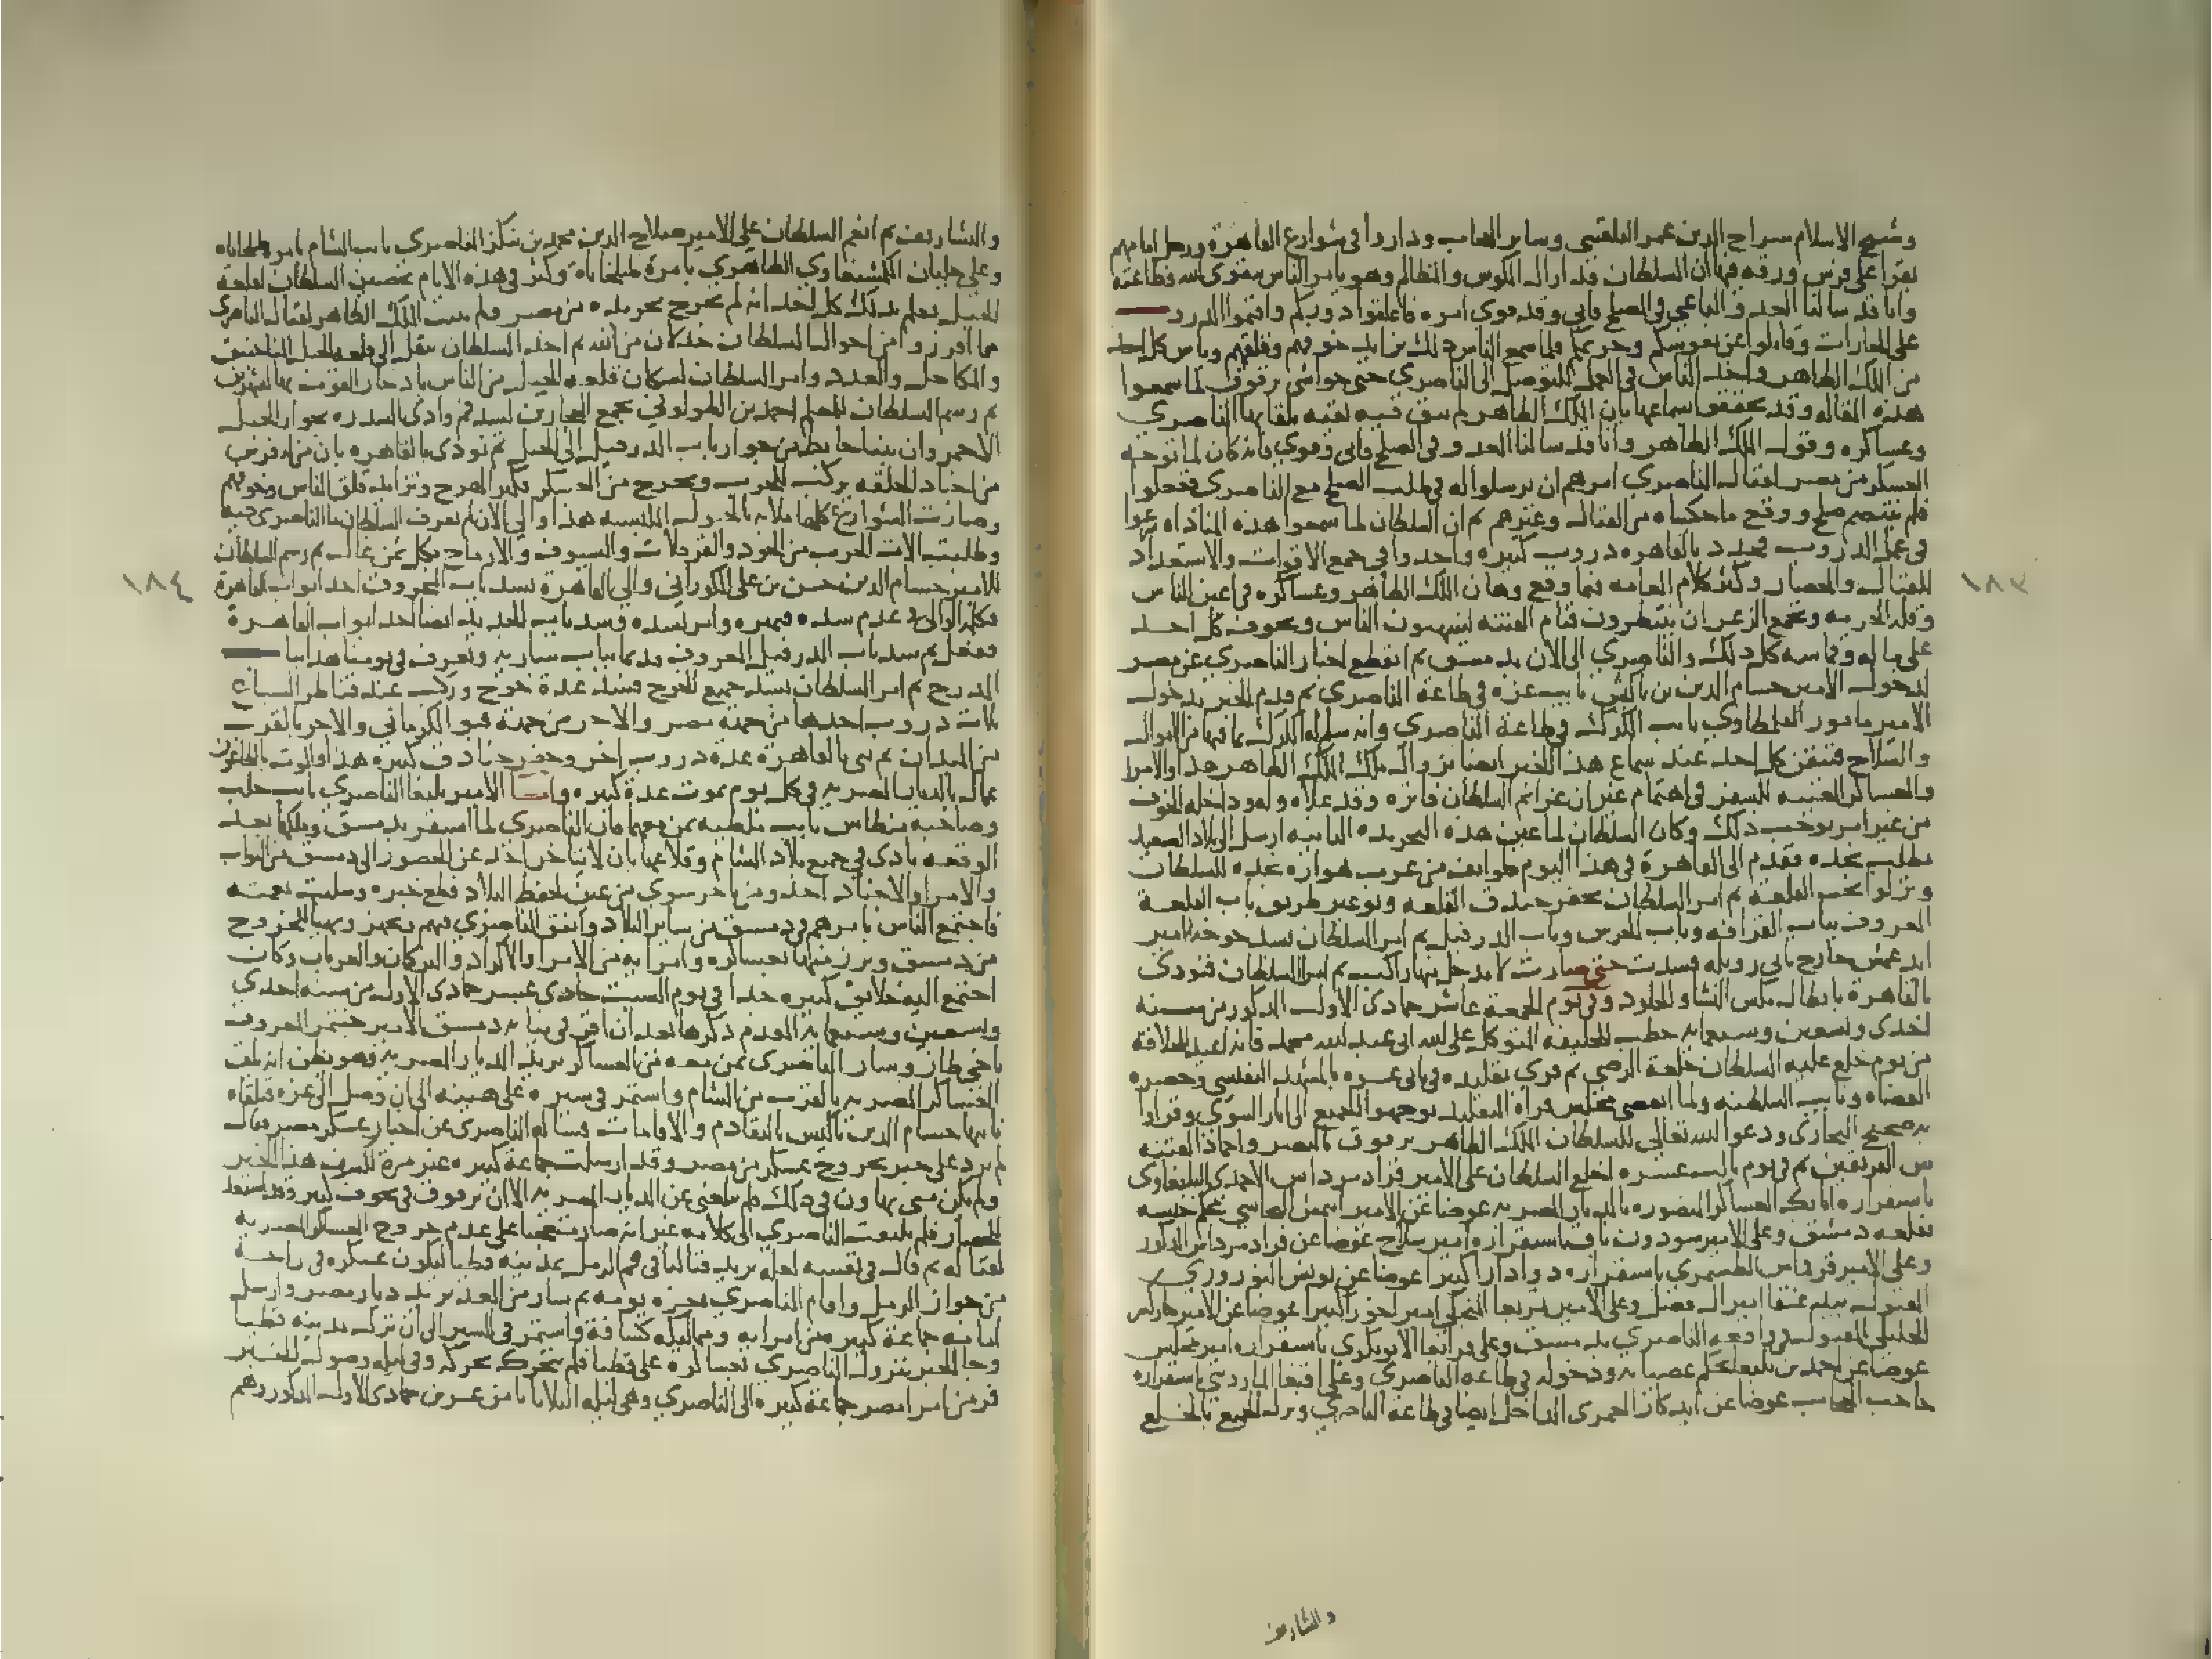 وشيخ الاسلام سراج الدين عمر البلقيني وساير الحجاب وداروا في شوارع القاهرة ورجل امامهم
يقرا على فرس ورقه فيها ان السلطان قد ازال المكوس والمظالم وهو يامر الناس بتقوى الله وطاعته
وانا قد سالنا العدو الباغي في الصلح فابى وقد قوي امره فاغلقوا دوركم واقيموا الدرب
على الحارات وقاتلوا عن نفوسكم وحريمكم فلما سمع الناس ذلك تزايد خوفهم وقلقهم ويأس كل احد
من الملك الظاهر واخذ الناس في العمل للتوصل الى الناصري حتى حواشي برقوق لما سمعوا
هذه المقاله وقد تحققوا بسماعها بان الملك الظاهر لم يبق فيه بقيه يلقا بها الناصري
وعساكره وقول الملك الظاهر وانا قد سالنا العدو في الصلح فابى وقوي فانه كان لما توجه
العسكر من مصر لقتال الناصري امرهم ان يرسلوا له في طلب الصلح مع الناصري ففعلوا
فلم ينتصم صلح ووقع ما حكيناه من القتال وغيرهم ثم ان السلطان لما سمعوا هذه المناداه شرعوا
في عمل الدروب فجدد بالقاهره دروب كثيره واخذوا في جمع الاقوات والاستعداد
للقتال والحصار وكثر كلام العامه فيما وقع وهان الملك الظاهر وعساكره في اعين الناس
وقلت الحرمه وتجمع الزعر ان ينتظرون قيام الفتنه لينهبون الناس وتخوف كل احد
على ماله وقماشه كل ذلك والناصري الى الان بدمشق ثم انقطع اخبار الناصري عن مصر
لدخول الامير حسام الدين بن باكيش نايب غزه في طاعة الناصري ثم قدم الخبر بدخول
الامير مامور القلمطاوي نايب الكرك في طاعة الناصري وانه سلم له الكرك بما فيها من الاموال
والسلاح فتيقن كل احد عند سماع هذا الخبر ايضا بزوال ملك الملك الظاهر هذا والامرا
والعساكر المعينه للسفر في اهتمام غير ان عزايم السلطان فاتره وقد علاه وله وداخله الخوف
من غير امر يوجب ذلك وكان السلطان لما عين هذه التجريده الثانيه ارسل الى بلاد الصعيد
يطلب نجده فقدم الى القاهرة في هذا اليوم طوايف من عرب هواره نجده للسلطان
ونزلوا تحت القلعة ثم امر السلطان بحفر خندق القلعه وتوعير طريق باب القلعة
المعروف بباب القرافه وباب الحرس وباب الدرفيل ثم امر السلطان بسد خوخة الامير
ايدغمش خارج بابي زويله فسدت حتى صارت لا يدخل منها راكب ثم امر السلطان فنودي
بالقاهرة بابطال مكس النشا والجلود وفي يوم الجمعة عاشر جمادى الاولى المذكور من سنه
احدى وتسعين وسبعمايه خطب للخليفه المتوكل على الله ابي عبد الله محمد فانه اعيد للخلافة
من يوم خلع عليه السلطان خلعة الرضى ثم قري تقليده في ثاني عشره بالمشهد النفيسي وحضره
القضاه ونايب السلطنه ولما انقضى مجلس قراة التقليد توجهوا الجميع الى اثار النبوي وقراوا
به صحيح البخاري ودعوا الله تعالى للسلطان الملك الظاهر برقوق بالنصر واخماد الفتنه
بين الفريقين ثم في يوم ثالث عشره اخلع السلطان على الامير قرادمرداش الاحمدي اليلبغاوي
باستقراره اتابك العساكر المنصوره بالديار المصريه عوضا عن الامير ايتمش البجاسي بحكم حبسه
بقلعه دمشق وعلى الامير سودون باق باستقراره امير سلاح عوضا عن قرادمرداش المذكور
وعلى الامير قرقماس الطشتمري باستقراره دوادارا كبيرا عوضا عن يونس النوروزي
المقتول بيد عنقا امير ال فضل وعلى الامير تمربغا المنجكي امير اخور كبيرا عوضا عن الامير جاركس
الخليلي المقتول في واقعه الناصري بدمشق وعلى قرابغا الابوبكري باستقراره امير مجلس
عوضا عن احمد بن يلبغا بحكم عصيانه ودخوله في طاعة الناصري وعلى اقبغا المارديني باستقراره
حاجب الحجاب عوضا عن ايدكار العمري الداخل ايضا في طاعة الناصري ونزل الجميع بالخلع
والتشاريف
١٨٣
والتشاريف ثم انعم السلطان على الامير صلاح الدين محمد بن تنكز الناصري نايب الشام بامرة طبلخاناه
وعلى جلبان الكمشبغاوي الظاهري بامرة طبلخاناه وكثر في هذه الايام تحصين السلطان لقلعة
الجبل فعلم بذلك كل احد انه لم يخرج تجريده من مصر ولم يثبت الملك الظاهر لقتال الناصري
مما افرز وا من احوال السلطان خذلان من الله ثم اخذ السلطان ينقل الى قلعه الجبل المناجنيق
والمكاحل والعدد وامر السلطان لسكان قلعه الجبل من الناس بادخار القوت بها لشهرين
ثم رسم السلطان للمعلم احمد بن الطولوني بجمع الحجارين لسد فم وادي السدره بجوار الجبل
الاحمر وان يبنا حايط من جوار باب الدرفيل الى الجبل ثم نودي بالقاهره بان من له فرس
من اجناد الحلقه يركب للحرب ويخرج مع العسكر فكثر الهرج وتزايد قلق الناس وخوفهم
وصارت الشوارع كلها ملانه بالخيول الملبسه هذا والى الان لم يعرف السلطان ما الناصري فيه
وطلبت الات الحرب من الخود والقرقلات والسيوف والارماح بكل ثمن غال ثم رسم السلطان
للامير حسام الدين حسن بن علي الكوراني والي القاهرة بسد باب المحروق احد ابواب القاهرة
فكلمه الوالي في عدم سده فنهره وامر بسده وسد باب الجديد ايضا احد ابواب القاهرة
ففعل ثم سد باب الدرفيل المعروف قديما بباب ساريه ويعرف في يومنا هذا بباب
المدرج ثم امر السلطان بسد جميع الخوخ فسد عدة خوخ وركب عند قناطر السباع
ثلاث دروب احدها من جهة مصر والاخر من جهة قبو الكرماني والاخر بالقرب
من الميدان ثم بنى بالقاهرة عدة دروب اخر وحفر خنادق كثيره هذا والموت بالطاعون
عمال بالديار المصريه في كل يوم يموت عدة كبيره وامـــا الامير يلبغا الناصري نايب حلب
وصاحبه منطاش نايب ملطيه ممن معهما فان الناصري لما استقر بدمشق وملكها بعد
الوقعه نادى في جميع بلاد الشام وقلاعها بان لا يتاخر احد عن الحضور الى دمشق من النواب
والامرا والاجناد احد ومن تاخر سوي من عين لحفظ البلاد قطع خبزه وسلبت نعمته
فاجتمع الناس باسرهم في دمشق من ساير البلاد وانفق الناصري فيهم وتجهز وتهيا للخروج
من دمشق وبرز منها بعساكره وامرايه من الامرا والاكراد والتركمان والعربان وكان
اجتمع اليه خلايق كثيره جدا في يوم السبت حادي عشر جمادى الاولى من سنه احدى
وتسعين وسبعمايه المقدم ذكرها بعد ان اقر في نيابه دمشق الامير جنتمر المعروف
باخي طاز وسار الناصري بمن معه من العساكر يريد الديار المصريه وهو يظن انه يلقى
العساكر المصريه بالقرب من الشام واستمر في سيره على هينه الى ان وصل الى غزه فتلقاه
نايبها حسام الدين باكيش بالتقادم والاقامات فساله الناصري عن اخبار عسكر مصر فقال
لم يرد علي خبر بخروج عسكر من مصر وقد ارسلت جماعة كبيره غير مرة لكشف هذا الخبر
ولم يكن مني تهاون في ذلك فلم يبلغني عن الديار المصريه الا ان برقوق في تخوف كبير وقد استعد
للحصار فلم يلتفت الناصري الى كلامه غير انه صار متعجبا على عدم خروج العساكر المصريه
لقتاله ثم قال في نفسه لعله يريد قتالنا في فم الرمل عدينه قطيا ليكون عسكره في راحة
من جواز الرمل واقام الناصري بغزه يومه ثم سار من الغد يريد ديار مصر وارسل
امامه جماعة كبير من امرايه ومماليكه كشافة واستمر في السير الى ان نزل مدينه قطيا
وجا الخبر بنزول الناصري بعساكره على قطيا فلم يتحرك بحركه وفي ليله وصول الخبر
فر من امرا مصر جماعة كبيره الى الناصري وهي ليله الثلاثا ثامن عشرين جمادى الاولى المذكور وهم
١٨٤